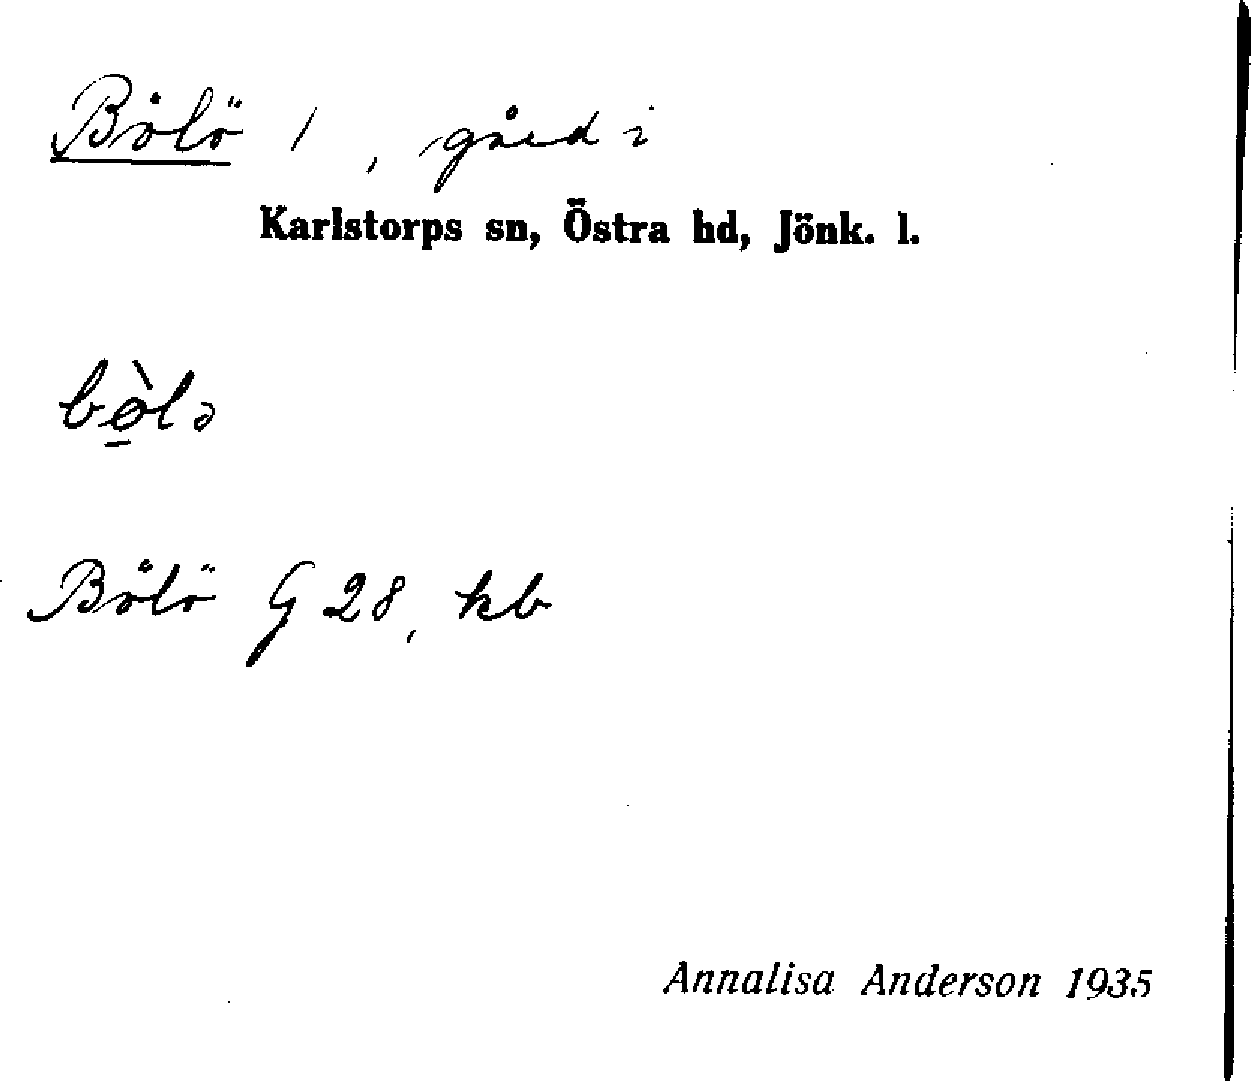 Bölö 1, gård i
Karlstorps sn, Östra hd, Jönk. l.
bø̱̀lə
Bölö G 28, kb
Annalisa Anderson 1935